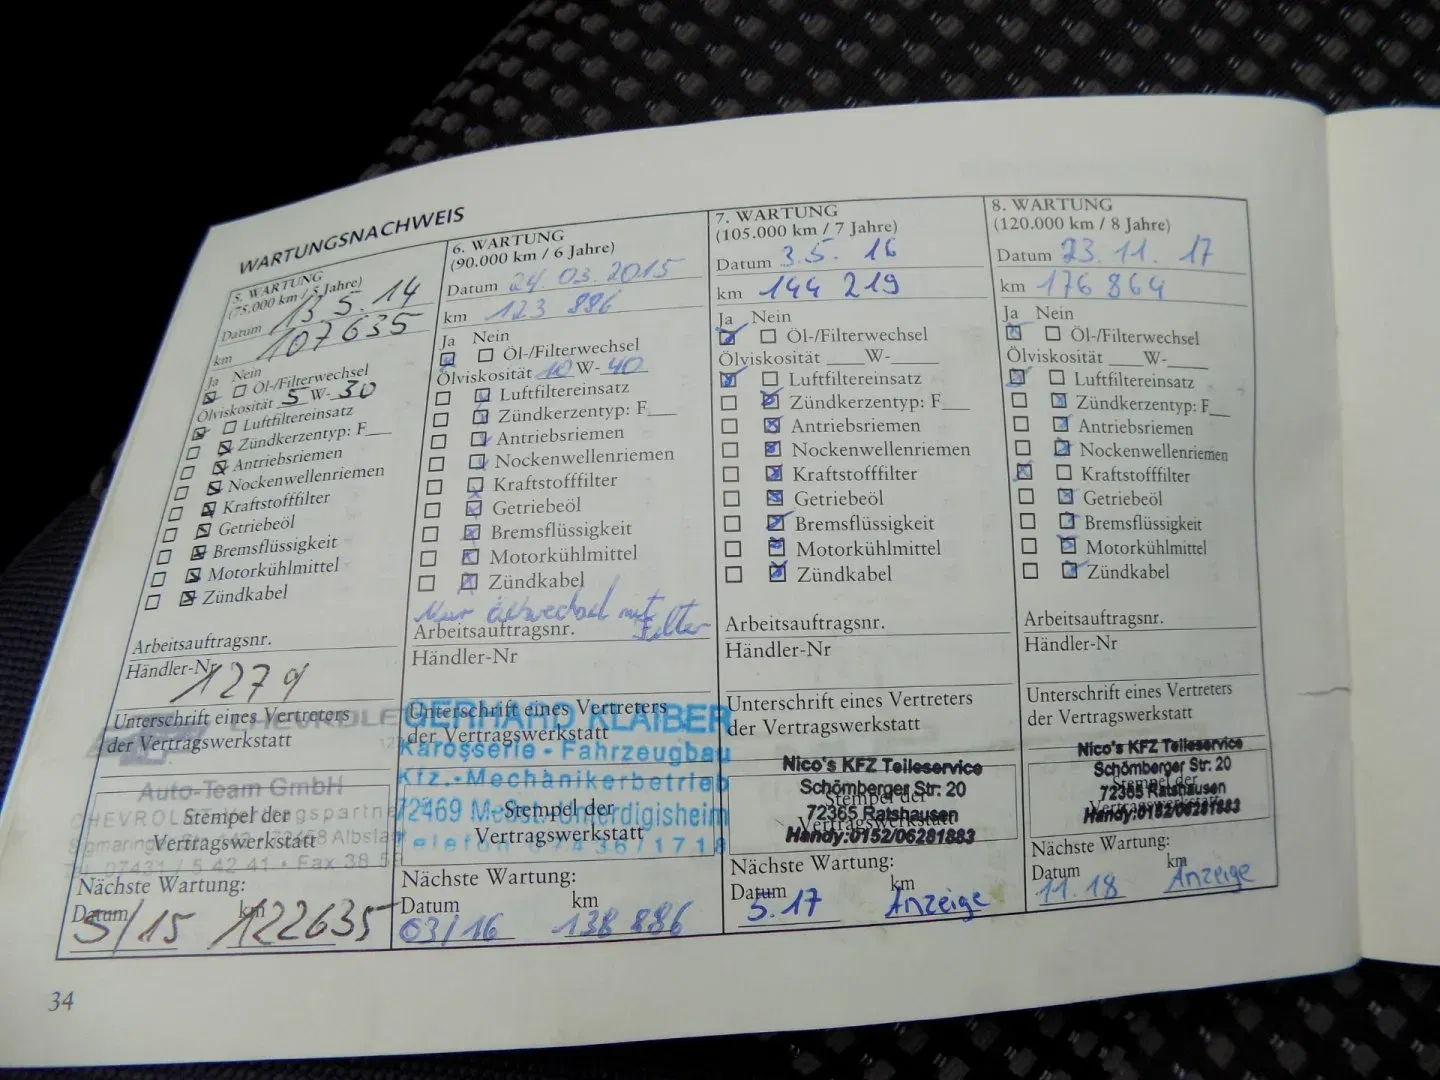 WARTUNGSNACHWEIS
5. WARTUNG
(75.000 km / 5 Jahre)
Datum 13.5.14
km 107635
Ja Nein
Öl-/Filterwechsel
Ölviskosität 5 W- 30
Luftfiltereinsatz
Zündkerzentyp: F___
Antriebsriemen
Nockenwellenriemen
Kraftstofffilter
Getriebeöl
Bremsflüssigkeit
Motorkühlmittel
Zündkabel
Arbeitsauftragsnr.
Händler-Nr 1279
Unterschrift eines Vertreters
der Vertragswerkstatt
CHEVROLET
Auto-Team GmbH
Stempel der
Vertragswerkstatt
Nächste Wartung:
Datum km
5/15 122635
6. WARTUNG
(90.000 km / 6 Jahre)
Datum 24.03.2015
km 123 886
Ja Nein
Öl-/Filterwechsel
Ölviskosität 10 W- 40
Luftfiltereinsatz
Zündkerzentyp: F___
Antriebsriemen
Nockenwellenriemen
Kraftstofffilter
Getriebeöl
Bremsflüssigkeit
Motorkühlmittel
Zündkabel
Nur ölwechsel mit
Filter
Arbeitsauftragsnr.
Händler-Nr
Unterschrift eines Vertreters
der Vertragswerkstatt
GERHARD KLAIBER
Karosserie - Fahrzeugbau
Kfz.-Mechanikerbetrieb
72469 Meßst.-Unterdigisheim
Telefon 07436/1718
Stempel der
Vertragswerkstatt
Nächste Wartung:
Datum km
03/16 138 886
7. WARTUNG
(105.000 km / 7 Jahre)
Datum 3.5. 16
km 144 219
Ja Nein
Öl-/Filterwechsel
Ölviskosität ___W-____
Luftfiltereinsatz
Zündkerzentyp: F___
Antriebsriemen
Nockenwellenriemen
Kraftstofffilter
Getriebeöl
Bremsflüssigkeit
Motorkühlmittel
Zündkabel
Arbeitsauftragsnr.
Händler-Nr
Unterschrift eines Vertreters
der Vertragswerkstatt
Nico's KFZ Teileservice
Schömberger Str: 20
72365 Ratshausen
Handy:0152/06281883
Stempel der
Vertragswerkstatt
Nächste Wartung:
Datum km
5.17 Anzeige
8. WARTUNG
(120.000 km / 8 Jahre)
Datum 23.11.17
km 176 864
Ja Nein
Öl-/Filterwechsel
Ölviskosität ___W-____
Luftfiltereinsatz
Zündkerzentyp: F___
Antriebsriemen
Nockenwellenriemen
Kraftstofffilter
Getriebeöl
Bremsflüssigkeit
Motorkühlmittel
Zündkabel
Arbeitsauftragsnr.
Händler-Nr
Unterschrift eines Vertreters
der Vertragswerkstatt
Nico's KFZ Teileservice
Schömberger Str: 20
72365 Ratshausen
Handy:0152/06281883
Stempel der
Vertragswerkstatt
Nächste Wartung:
Datum km
11.18 Anzeige
34